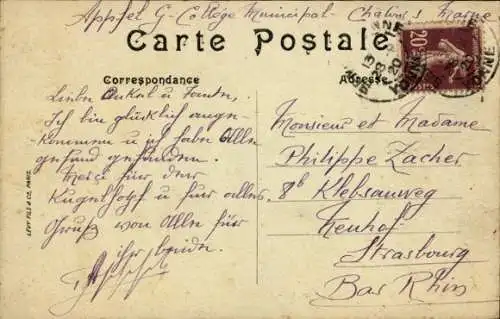 Appfel G. Collège Municipal - Chalons s Marne
Carte Postale
Correspondance
Adresse
20c
Liebe Onkel u Tante,
Ich bin glücklich ange-
kommen u ich habe Alle
gesund gefunden.
Merci für den
Kugelhopf u für alles.
Gruß von Alle für
ihr beide.
Monsieur et Madame
Philippe Zacher
8b Klebsauweg
Neuhof
Strasbourg
Bas Rhin
LÉVY FILS & CIE, PARIS